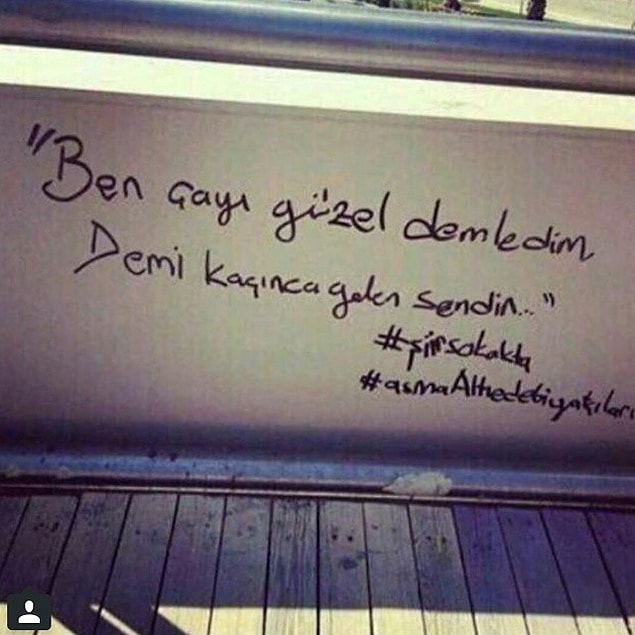 "Ben çayı güzel demledim
Demi kaçınca gelen sendin..."
#şiirsokakta
#asmaAltıedebiyatçıları